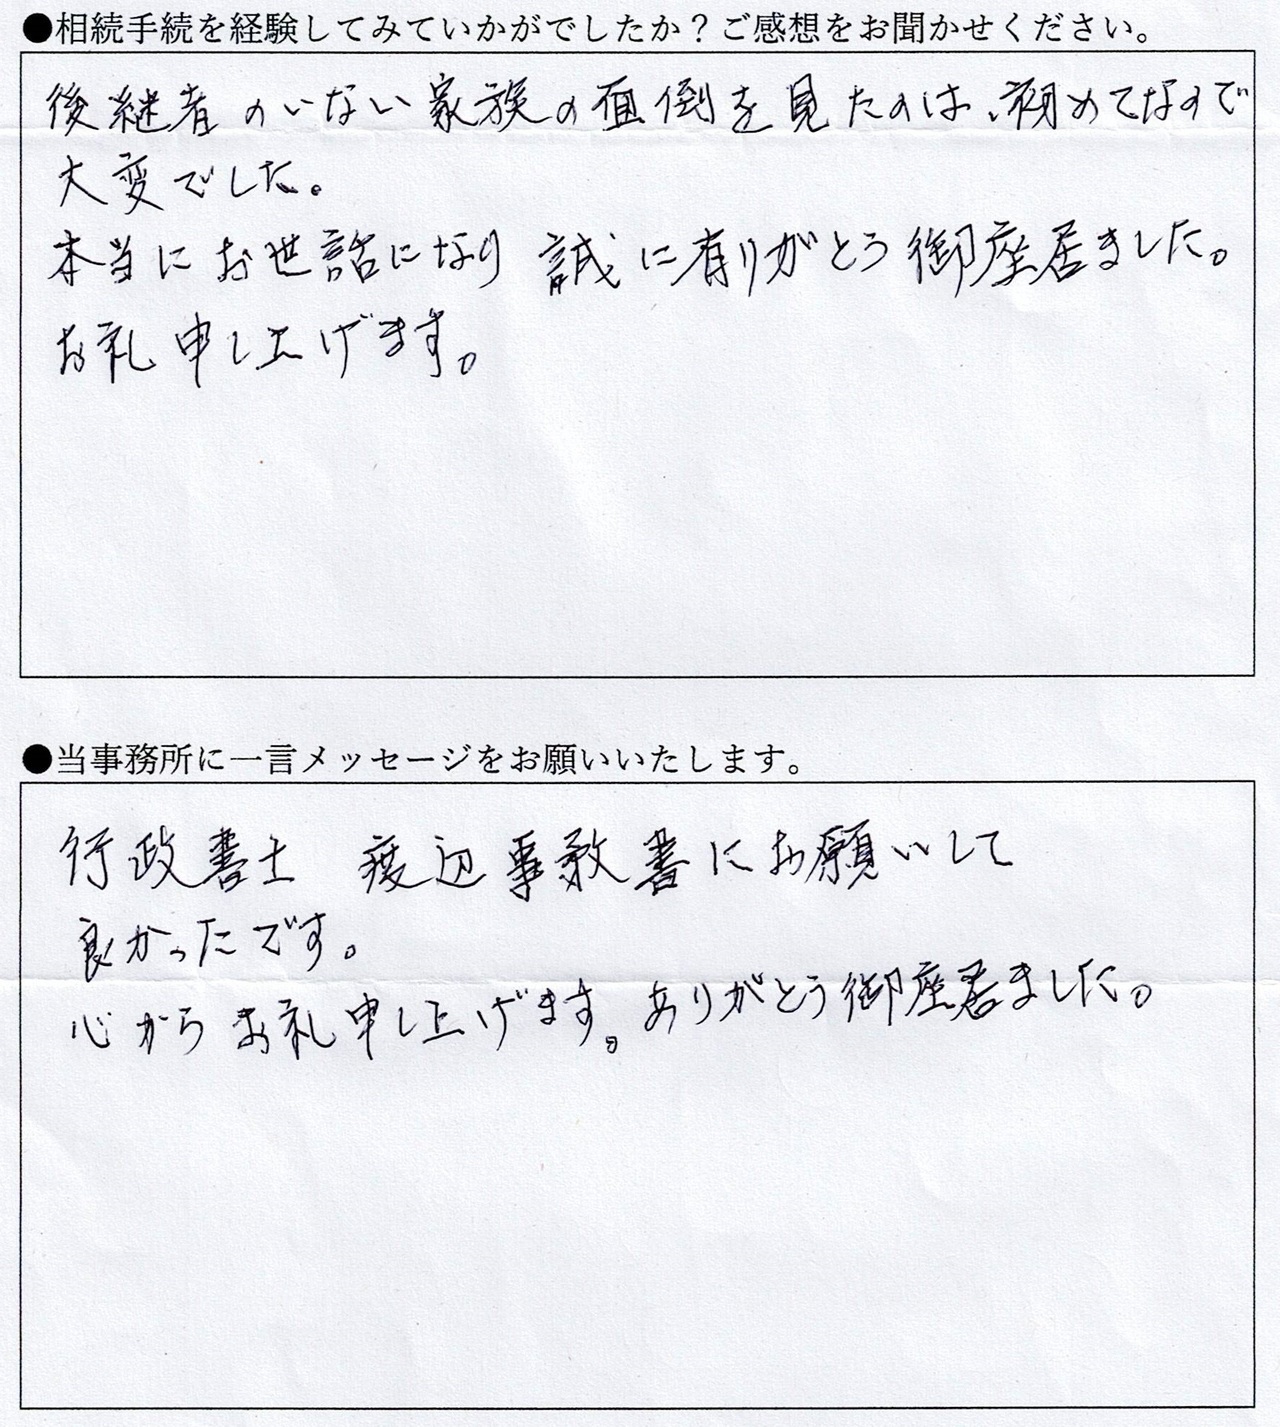 ●相続手続を経験してみていかがでしたか？ご感想をお聞かせください。
後継者のいない家族の面倒を見たのは、初めてなので
大変でした。
本当にお世話になり 誠に有りがとう御座居ました。
お礼申し上げます。
●当事務所に一言メッセージをお願いいたします。
行政書士 渡辺事務書にお願いして
良かったです。
心からお礼申し上げます。ありがとう御座居ました。